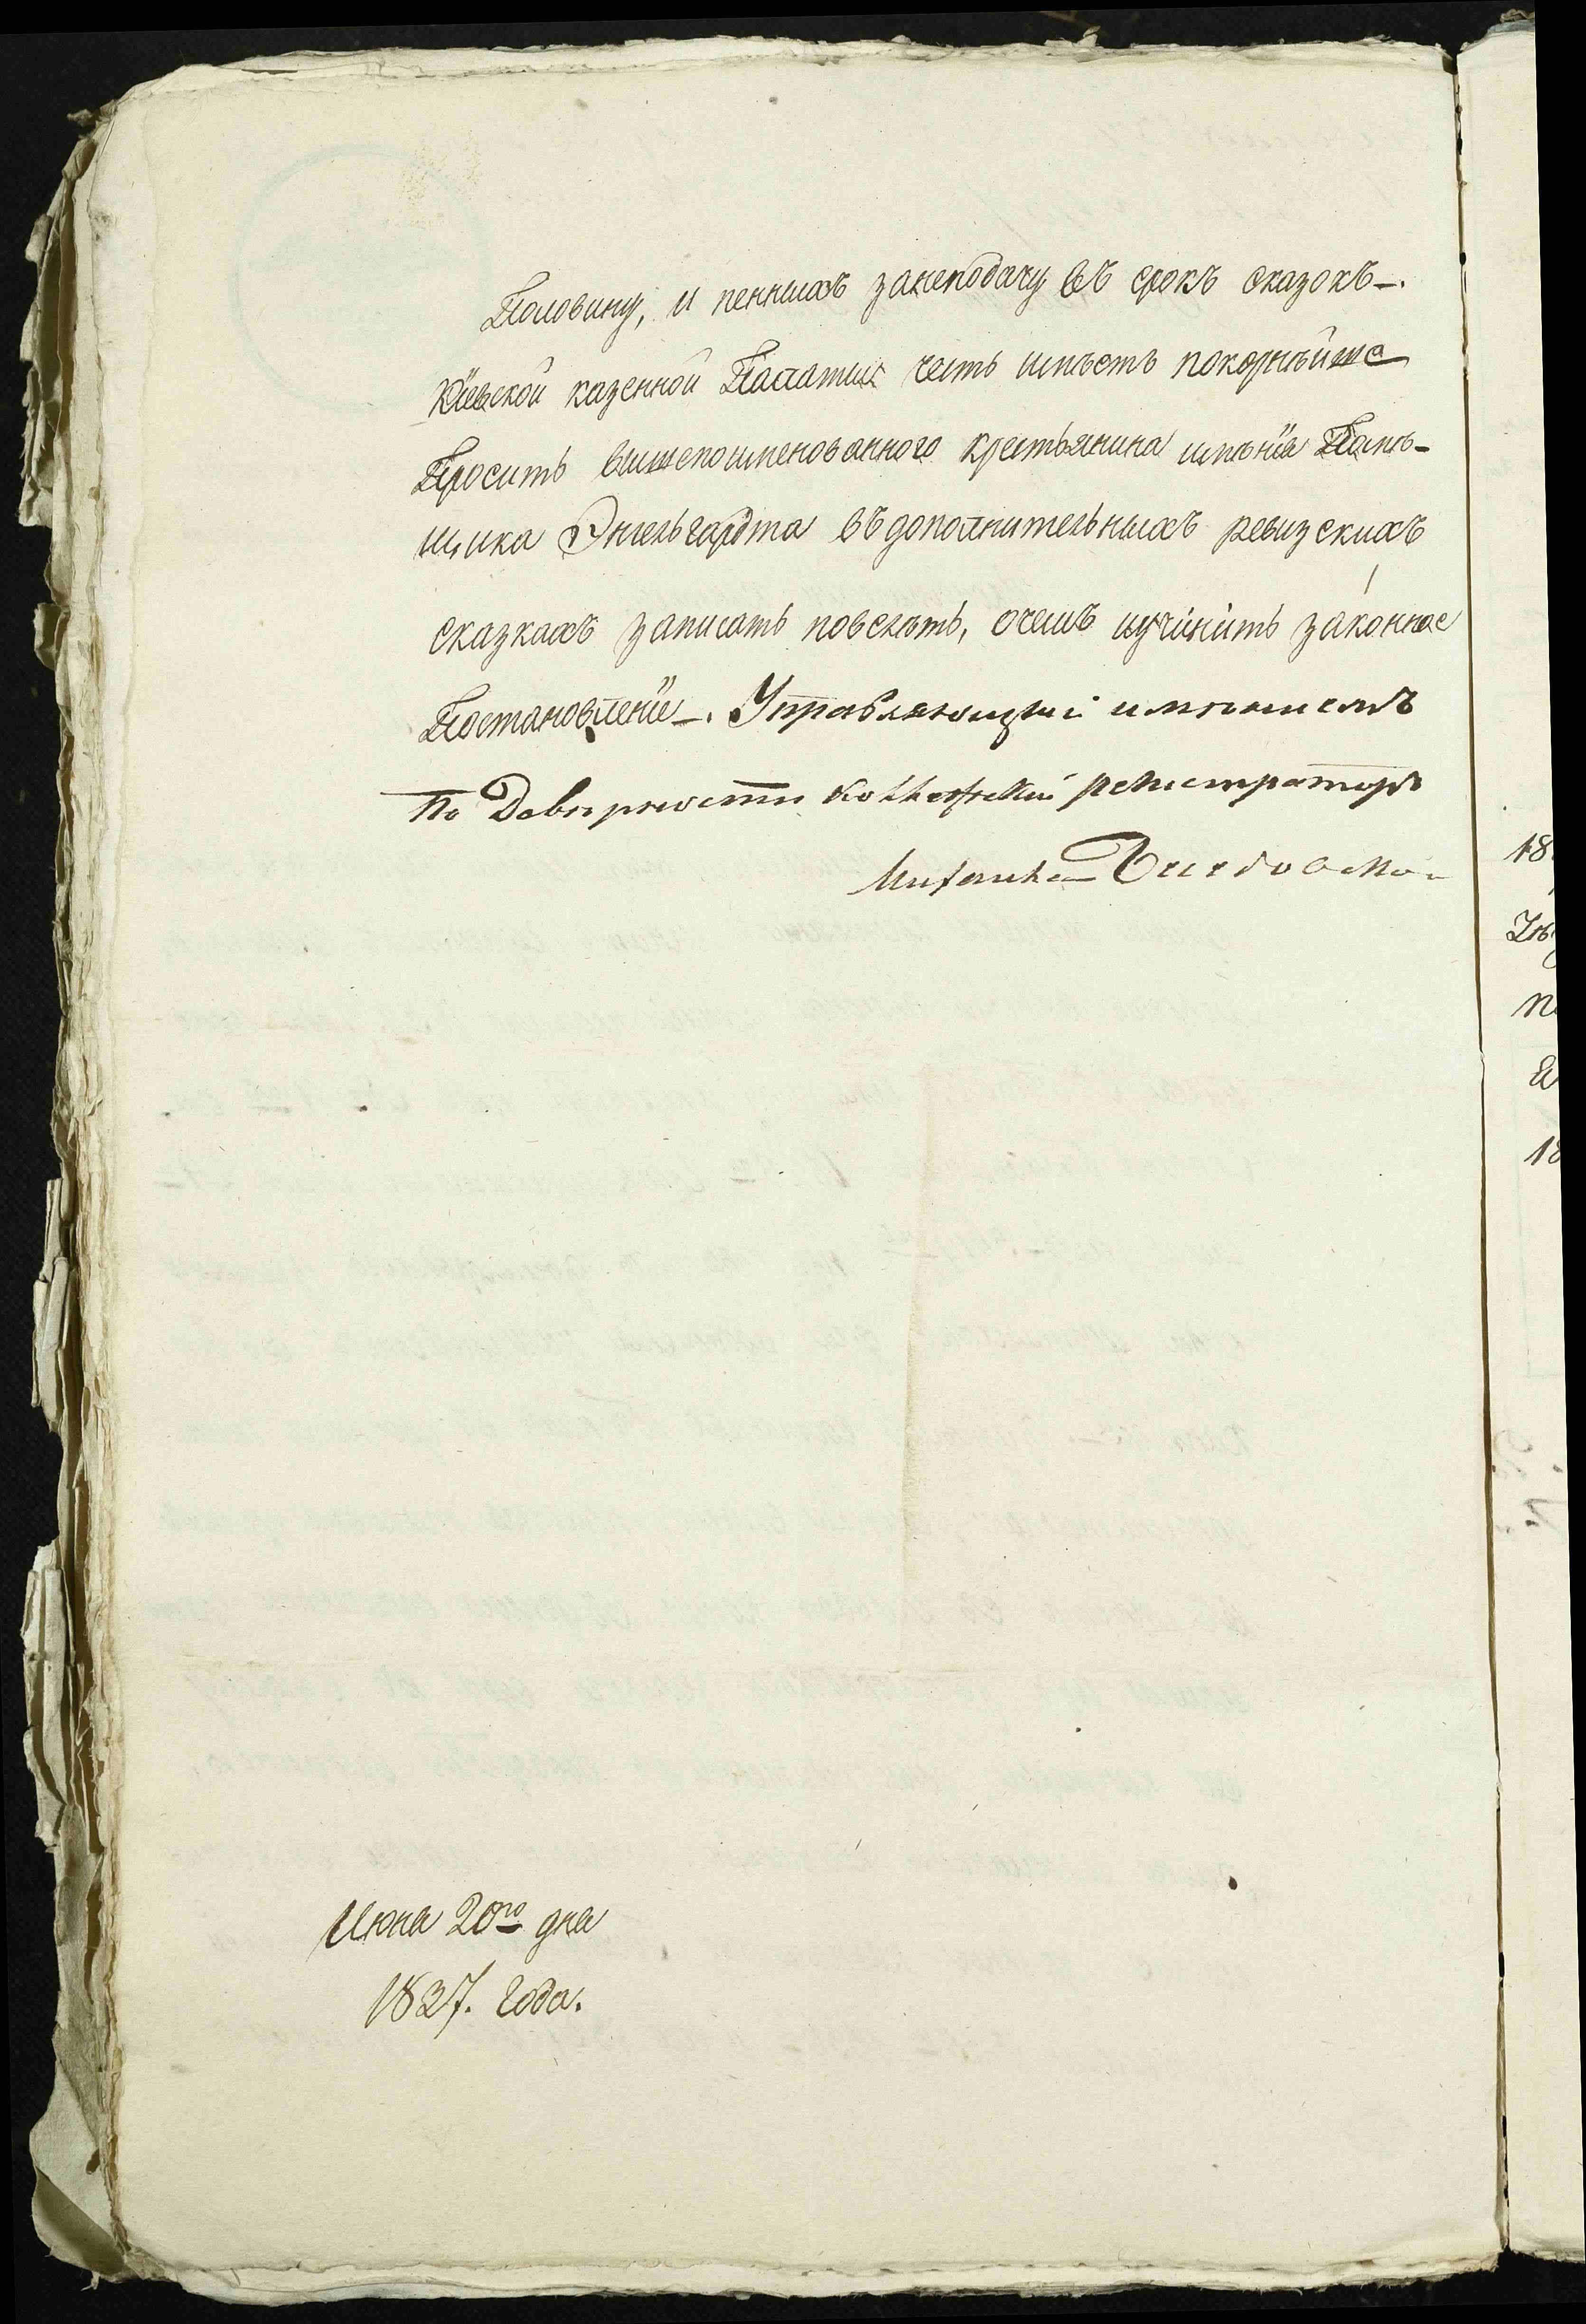 Половину, и пенныхъ занеподачу въ срокъ сказокъ-.
Кіевской казенной Палатык честь имѣетъ покорнѣйше
Просить вышепоименованного крестьянина имѣнія Помѣ-
щика Энгельгардта въ дополнительныхъ ревизскихъ
сказкахъ записать повелѣть, очемъ изучинить законное
Постановленіе-. Управляющій имѣніемъ
По Довѣрности Коллежскій регистраторъ
Июня 20го дня
1837. Года.
18